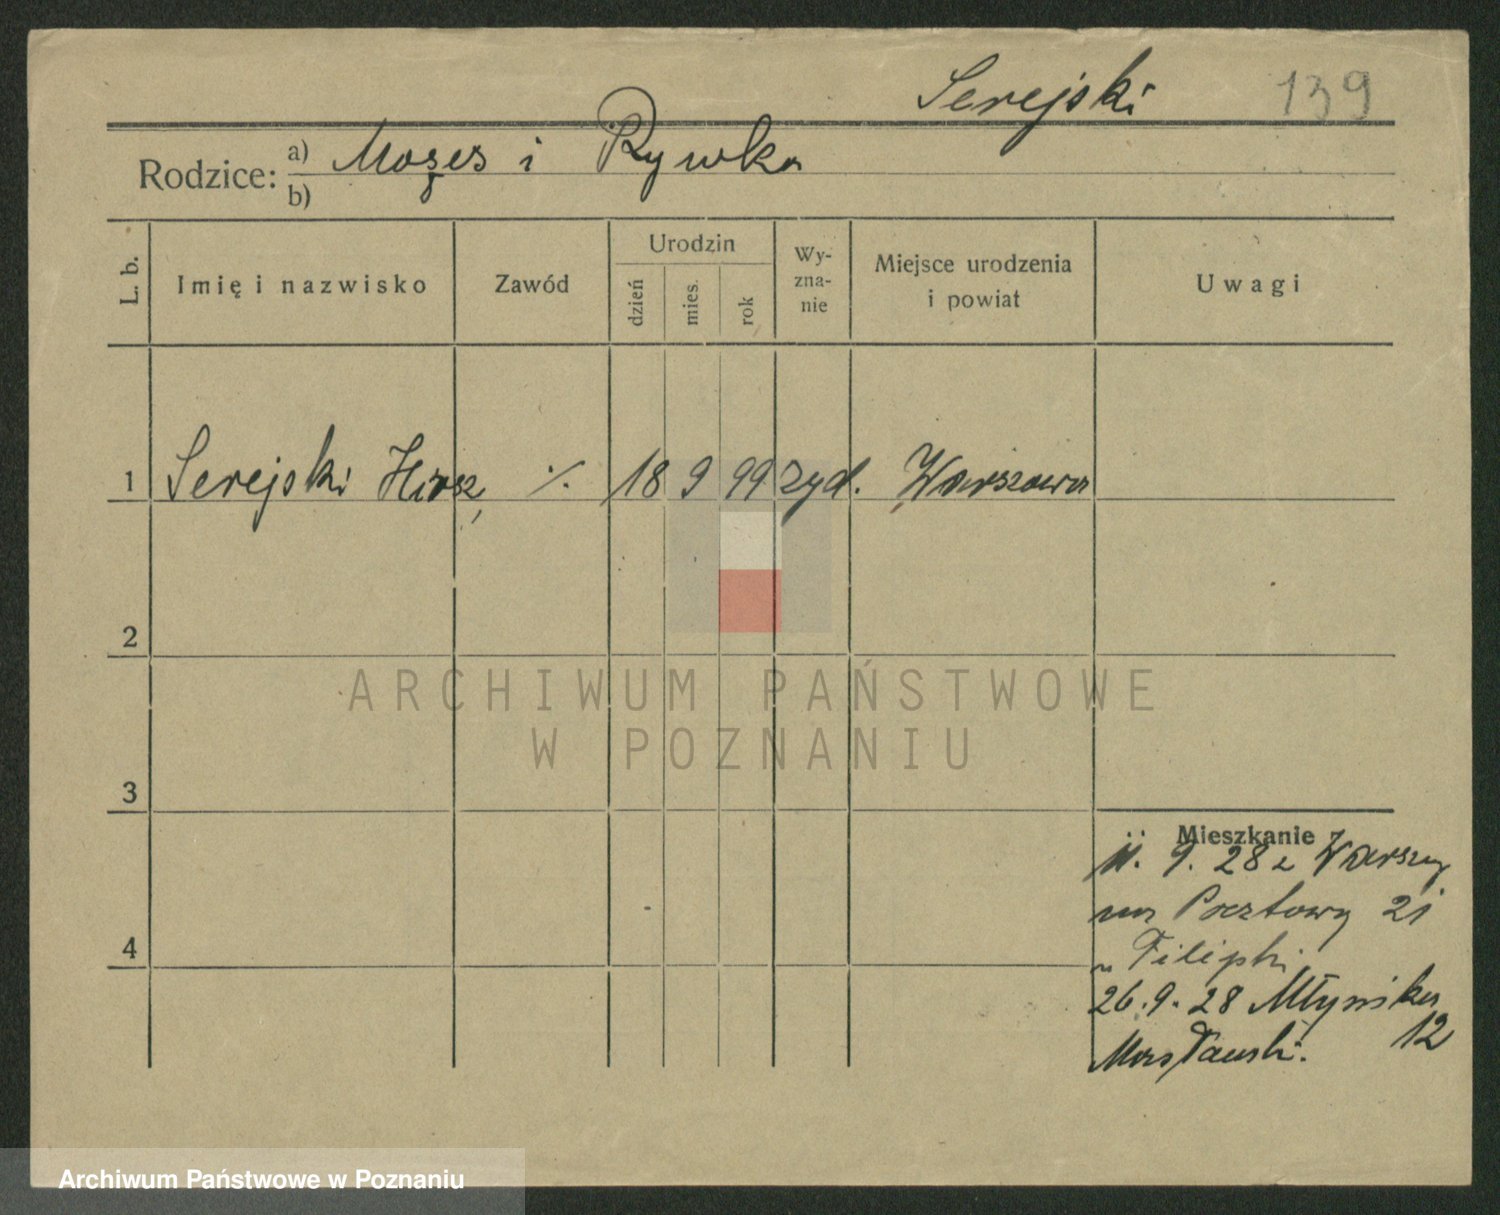 Serejski 139
Rodzice: a) Mozes i Rywka
b)
L. b. Imię i nazwisko Zawód Urodzin dzień mies. rok Wy-zna-nie Miejsce urodzenia i powiat Uwagi
1 Serejski Hirsz ./. 18 9 99 żyd. Warszawa
2
ARCHIWUM PAŃSTWOWE
W POZNANIU
3
Mieszkanie
11. 9. 28 z Warszwy
na Pocztowy 21
u Filipski
4
26.9.28 Młyńska
12
Masłowski.
Archiwum Państwowe w Poznaniu